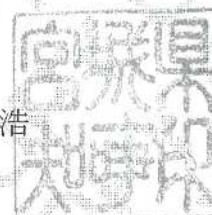 浩
宮城県
知事印